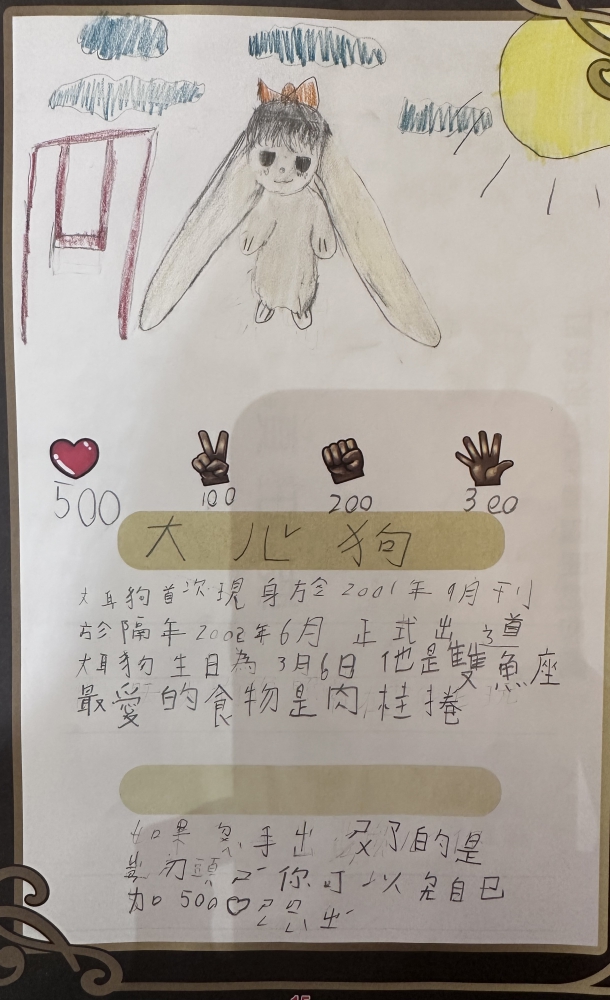 500 100 200 300
大心狗
大耳狗首次現身於 2001 年 9月刊
於隔年 2002年 6月 正式出道
大耳狗 生日為 3月6日 他是雙魚座
最愛的食物是肉桂捲
如果 手出 的是
頭 你可以 自己
加 500